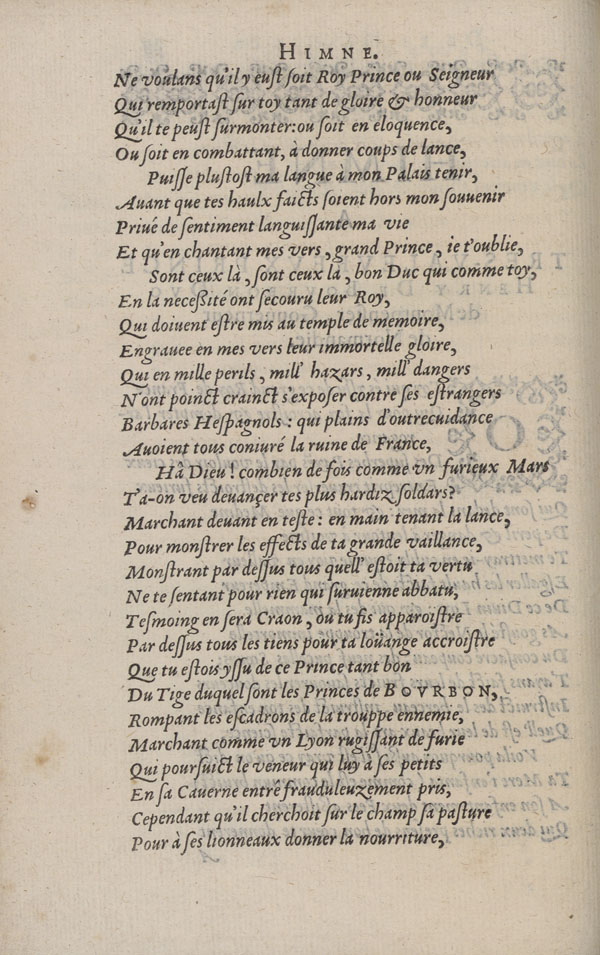 HIMNE.
Ne voulans qu'il y eust soit Roy Prince ou Seigneur
Qui remportast sur toy tant de gloire & honneur
Qu'il te peust surmonter: ou soit en eloquence,
Ou soit en combattant, à donner coups de lance,
Puisse plustost ma langue à mon Palais tenir,
Auant que tes haulx faicts soient hors mon souuenir
Priué de sentiment languissante ma vie
Et qu'en chantant mes vers, grand Prince, ie t'oublie,
Sont ceux là, sont ceux là, bon Duc qui comme toy,
En la necessité ont secouru leur Roy,
Qui doiuent estre mis au temple de memoire,
Engrauee en mes vers leur immortelle gloire,
Qui en mille perils, mill' hazars, mill' dangers
N'ont poinct crainct s'exposer contre ses estrangers
Barbares Hespagnols: qui plains d'outrecuidance
Auoient tous coniuré la ruine de France,
Hâ Dieu! combien de fois comme vn furieux Mars
T'a-on veu deuançer tes plus hardiz soldars?
Marchant deuant en teste: en main tenant la lance,
Pour monstrer les effects de ta grande vaillance,
Monstrant par dessus tous quell' estoit ta vertu
Ne te sentant pour rien qui suruienne abbatu,
Tesmoing en sera Craon, ou tu fis apparoistre
Par dessus tous les tiens pour ta loüange accroistre
Que tu estois yssu de ce Prince tant bon
Du Tige duquel sont les Princes de BOVRBON,
Rompant les escadrons de la trouppe ennemie,
Marchant comme vn Lyon rugissant de furie
Qui poursuict le veneur qui luy à ses petits
En sa Cauerne entré frauduleuzement pris,
Cependant qu'il cherchoit sur le champ sa pasture
Pour à ses lionneaux donner la nourriture,